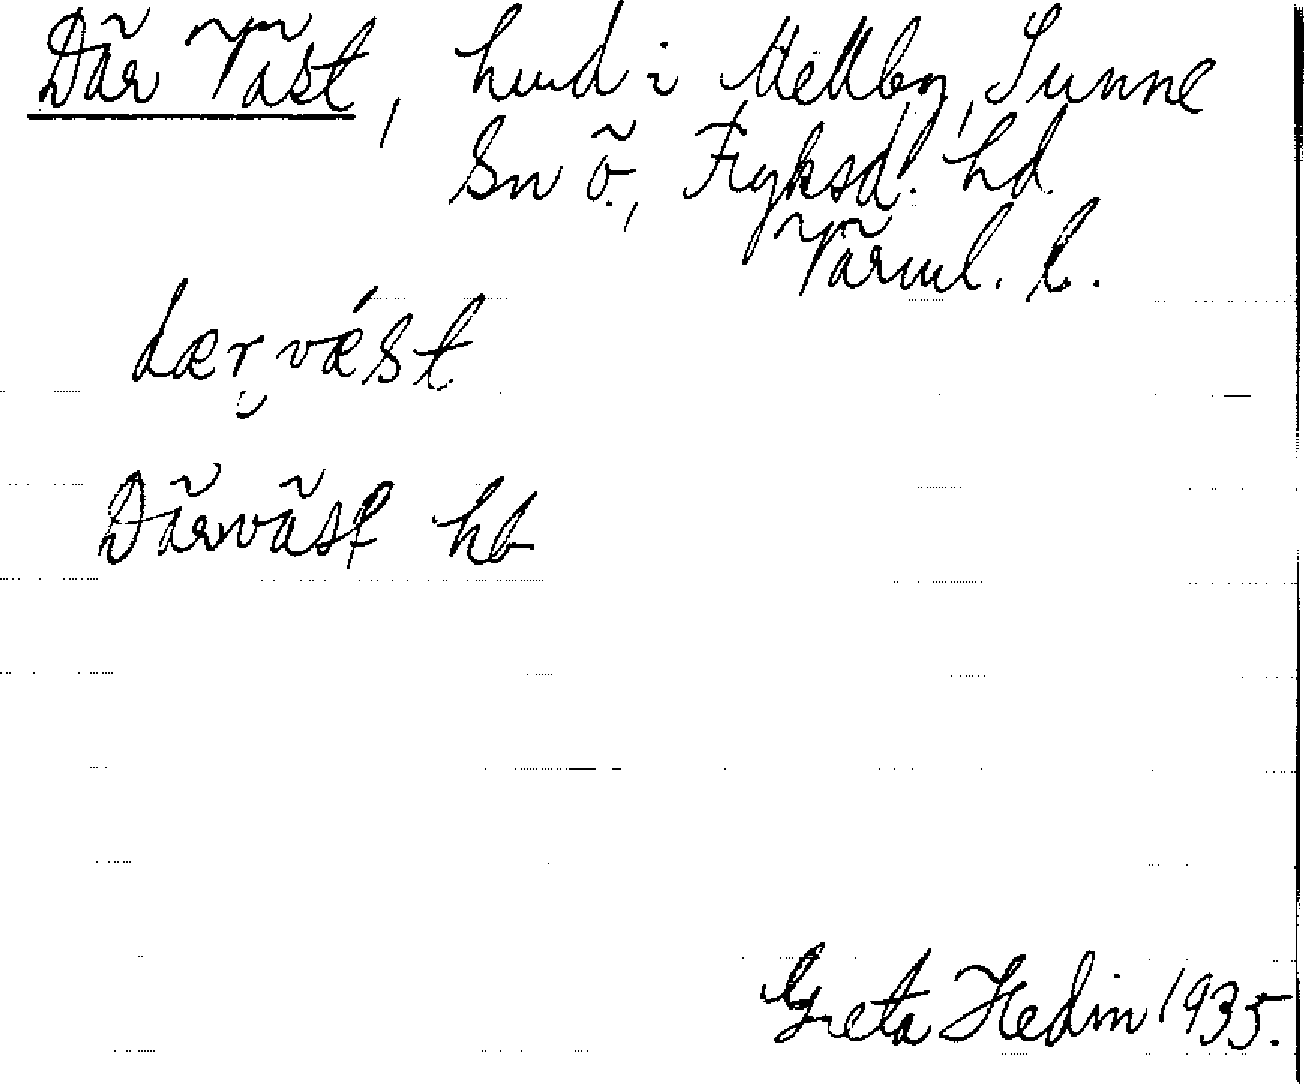 Där Väst, hmd i Mellby, Sunne
Sn ö., Fryksd. hd.
Värml. l.
dær̯vǽst
Därväst hb
Greta Hedin 1935.